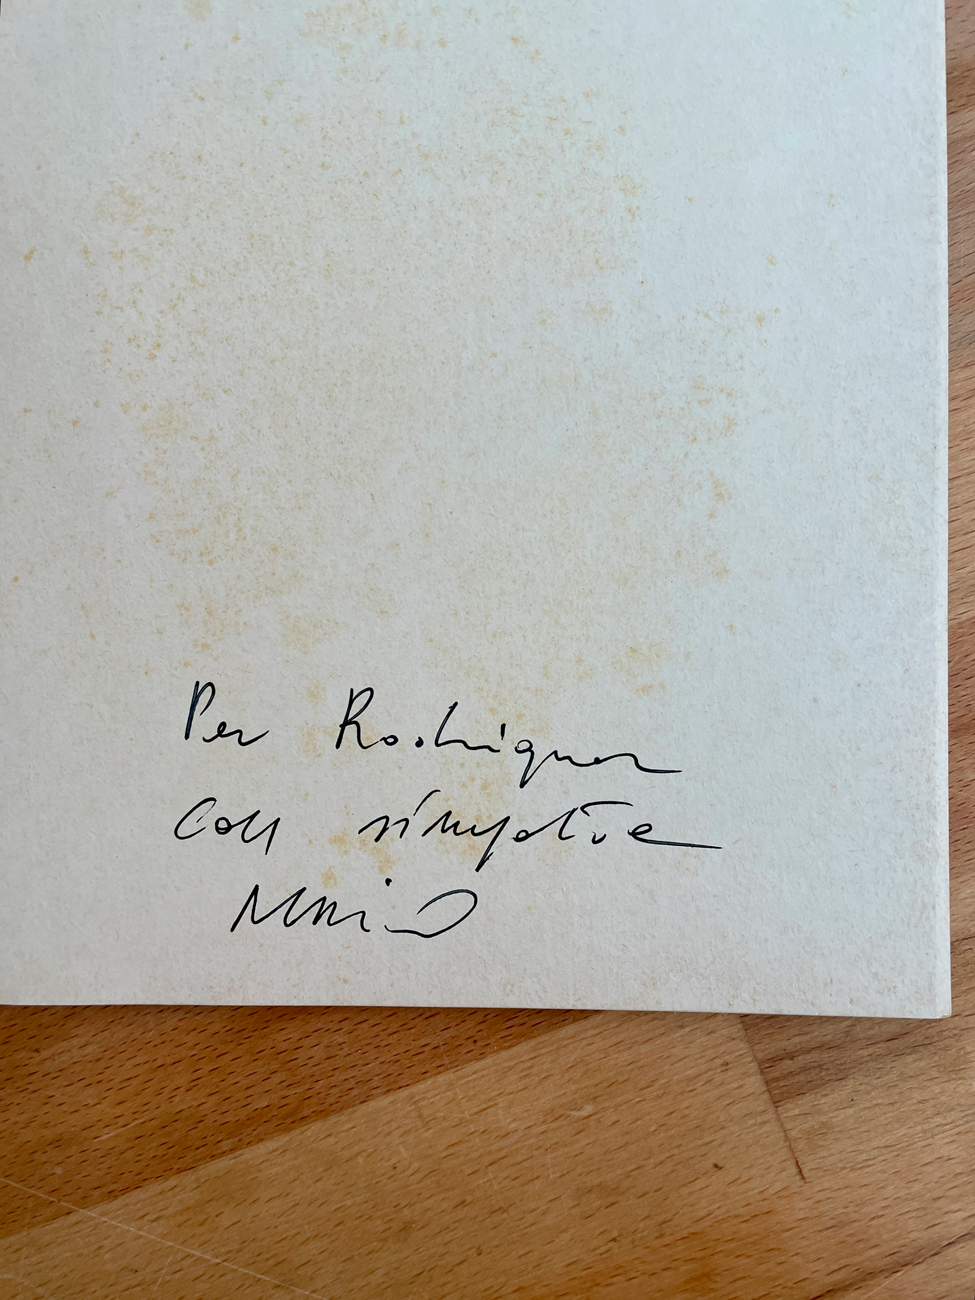 Per Rodriguez
con simpatia